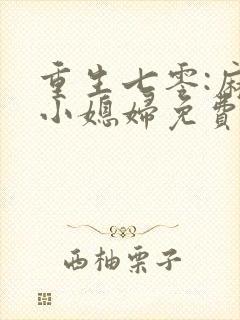 重生七零:麻
小媳婦免費
西柚栗子